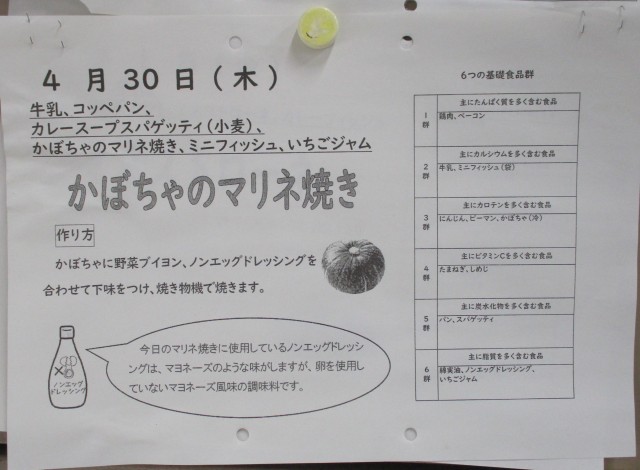 4月30日(木)
牛乳、コッペパン、
カレースープスパゲッティ(小麦)、
かぼちゃのマリネ焼き、ミニフィッシュ、いちごジャム
かぼちゃのマリネ焼き
作り方
かぼちゃに野菜ブイヨン、ノンエッグドレッシングを
合わせて下味をつけ、焼き物機で焼きます。
今日のマリネ焼きに使用しているノンエッグドレッシ
ングは、マヨネーズのような味がしますが、卵を使用し
ていないマヨネーズ風味の調味料です。
ノンエッグ
ドレッシング
6つの基礎食品群
1群
主にたんぱく質を多く含む食品
鶏肉、ベーコン
2群
主にカルシウムを多く含む食品
牛乳、ミニフィッシュ(袋)
3群
主にカロテンを多く含む食品
にんじん、ピーマン、かぼちゃ(冷)
4群
主にビタミンCを多く含む食品
たまねぎ、しめじ
5群
主に炭水化物を多く含む食品
パン、スパゲッティ
6群
主に脂質を多く含む食品
綿実油、ノンエッグドレッシング、
いちごジャム